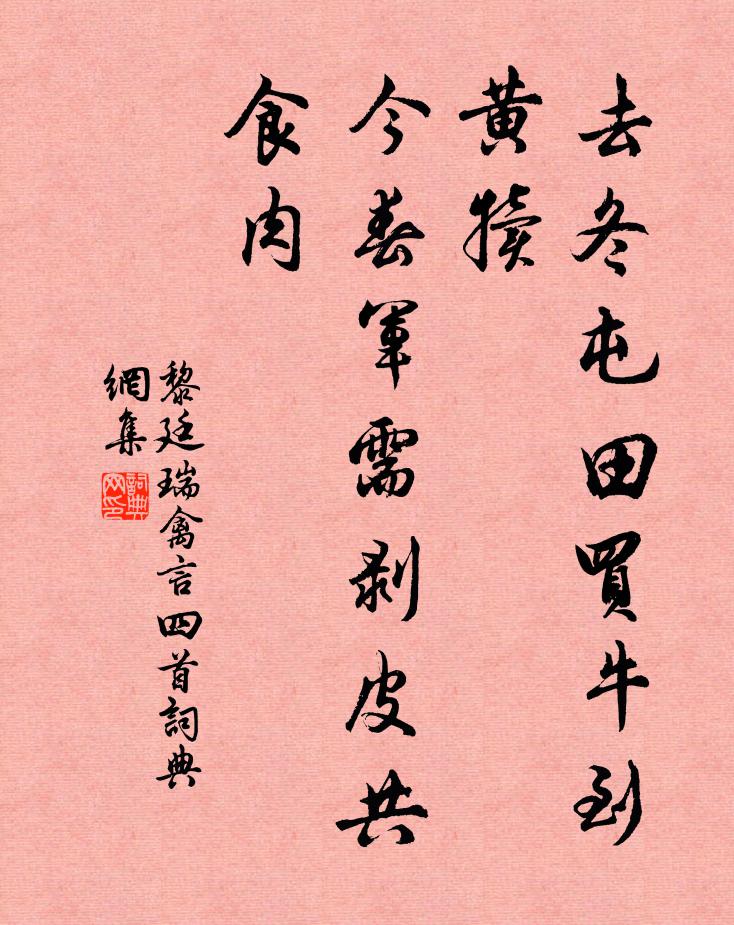 去冬屯田買牛到
黃犢
今春軍需剥皮共
食肉
黎廷瑞禽言四首詞典
網集
詞典
网印